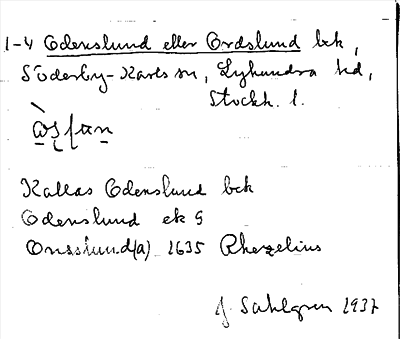 1-4 Odenslund eller Ordslund bck,
Söderby-Karls sn, Lyhundra hd,
Stockh. l.
Kallas Odenslund bck
Odenslund ek §
Onsslund(a) 1635 Rhezelius
J. Sahlgren 1937